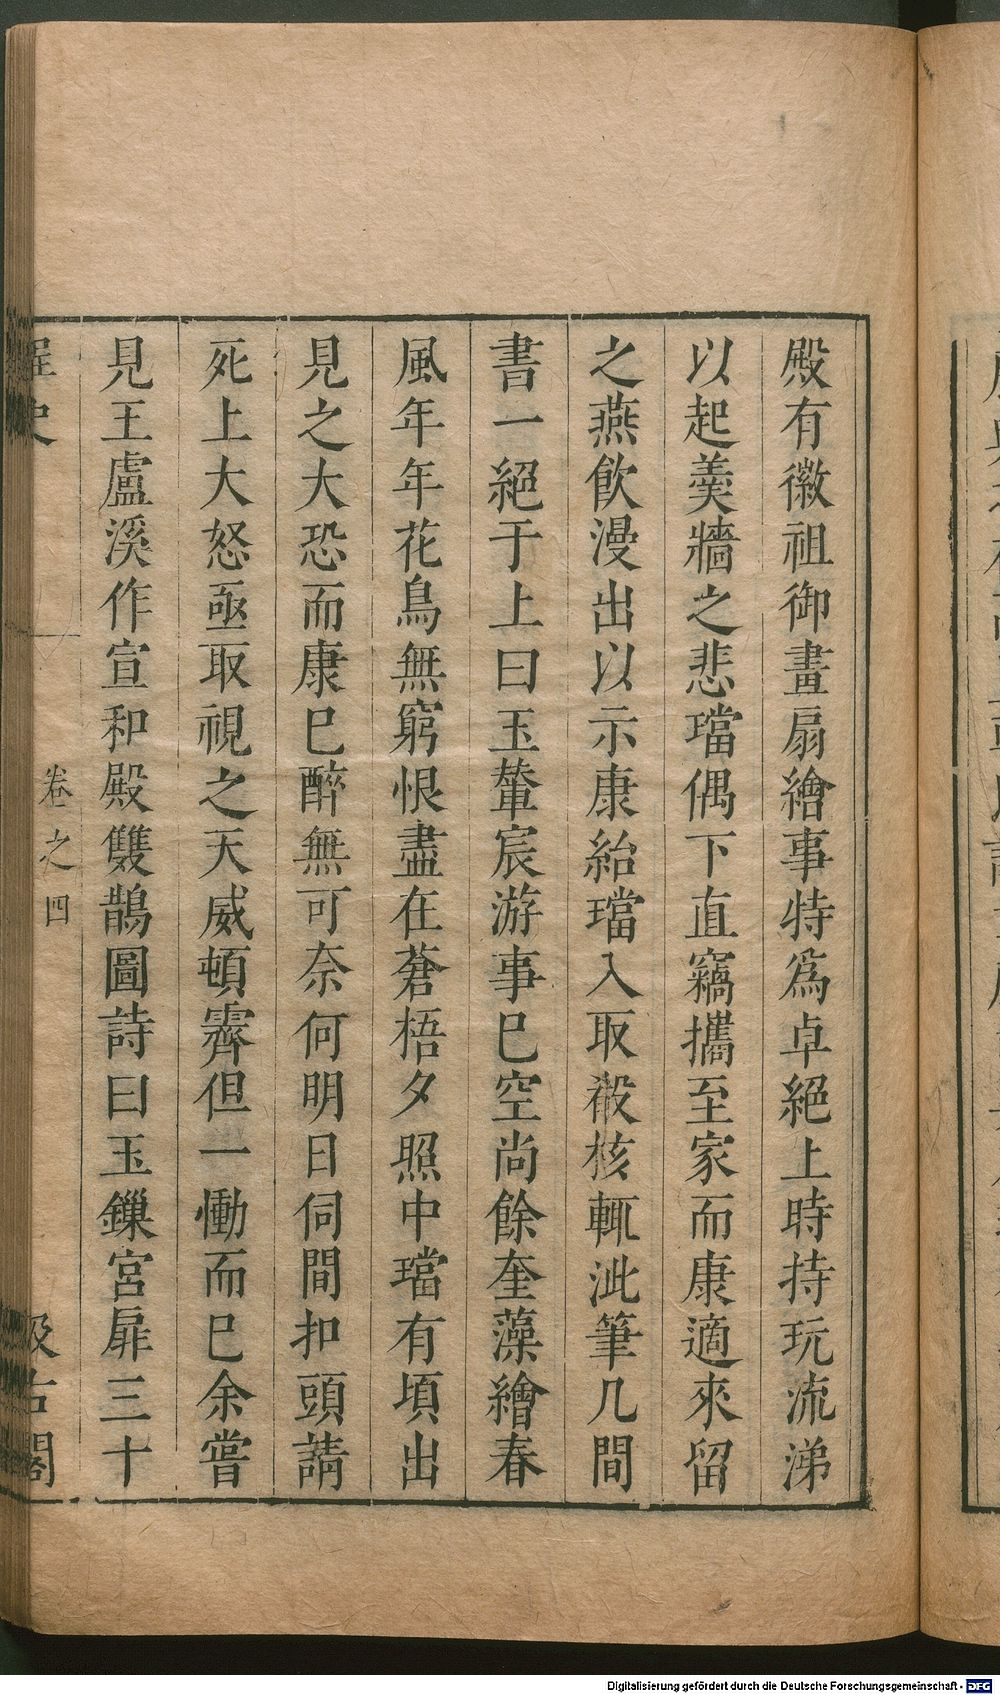 殿有徽祖御畫扇繪事特爲卓絕上時持玩流涕
以起羹牆之悲璫偶下直竊攜至家而康適來留
之燕飲漫出以示康紿璫入取殽核輒泚筆几間
書一絕于上曰玉輦宸游事已空尚餘奎藻繪春
風年年花鳥無窮恨盡在蒼梧夕照中璫有頃出
見之大恐而康已醉無可奈何明日伺間扣頭請
死上大怒亟取視之天威頓霽但一慟而已余嘗
見王盧溪作宣和殿雙鵲圖詩曰玉鏁宮扉三十
桯史
卷之四
汲古閣
Digitalisierung gefördert durch die Deutsche Forschungsgemeinschaft - DFG